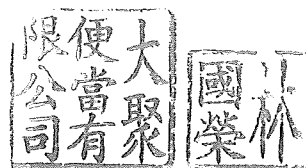 大聚
便當有
限公司
林
國榮